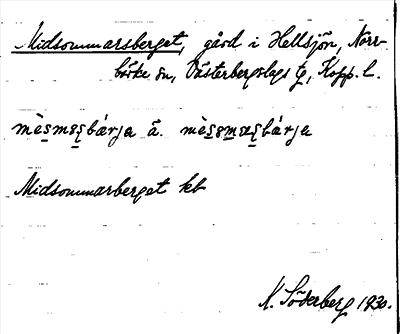 Midsommarsberget, gård i Hellsjön, Norr-
bärke sn, Västerbergslags tg, Kopp. l.
mèsmasbárja ä. mèsomasbárja
Midsommarberget kb
N. Söderberg 1930.